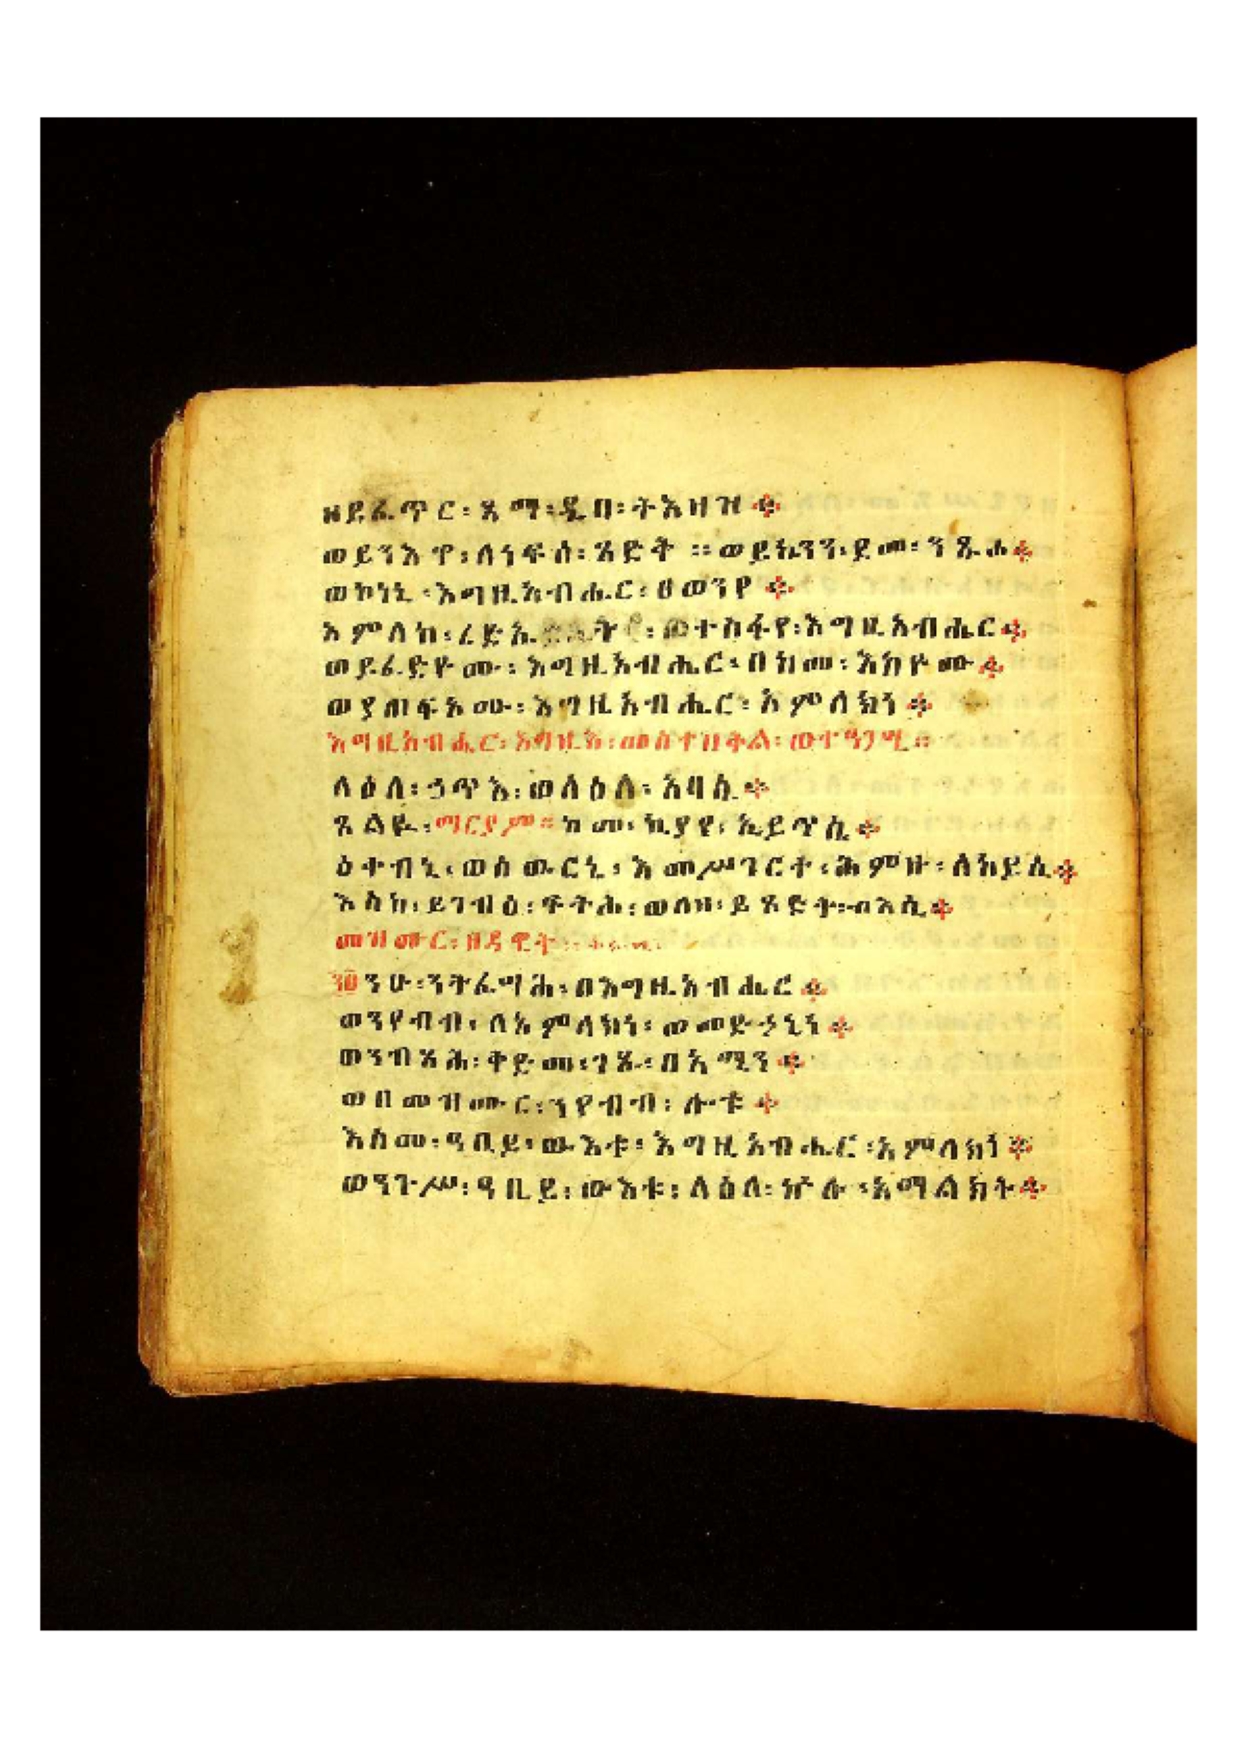 ዘይፈጥር፡ጻማ፡ዲበ፡ትእዛዝ፨
ወይንእዋ፡ለነፍሰ፡ጻድቅ ፡፡ወይኬንን፡ደመ፡ንጹሐ፨
ወኮነኒ፡እግዚአብሔር፡ፀወንየ፨
አምላከ፡ረድኤትየ፡ወተስፋየ፡እግዚአብሔር፨
ወይፈድዮሙ፡እግዚአብሔር፡በከመ፡እከዮሙ፨
ወያጠፍአሙ፡እግዚአብሔር፡አምላክነ፨
እግዚአብሔር፡እግዚእ፡
ላዕለ፡ኃጥእ፡ወላዕለ፡አባሲ፨
ጸልዪ፡ማርያም፡፡ከመ፡ኪያየ፡ኢይጥሲ፨
ዕቀብኒ፡ወሰውርኒ፡እመሥገርተ፡ሕምዙ፡ለከይሲ፨
እስከ፡ይገብዕ፡ፍትሕ፡ወለዘ፡ይጸድቅ፡ብእሲ፨
መዝሙር፡ዘዳዊት፡፡
፺፬ንዑ፡ንትፈሣሕ፡በእግዚአብሔር፨
ወንየብብ፡ለአምላክነ፡ወመድኃኒነ፨
ወንብጻሕ፡ቅድመ፡ገጹ፡በአሚን፨
ወበመዝሙር፡ንየብብ፡ሎቱ፨
እስመ፡ዓቢይ፡ውእቱ፡እግዚአብሔር፡አምላክነ፨
ወንጉሥ፡ዓቢይ፡ውእቱ፡ላዕለ፡ኵሉ፡አማልክት፨